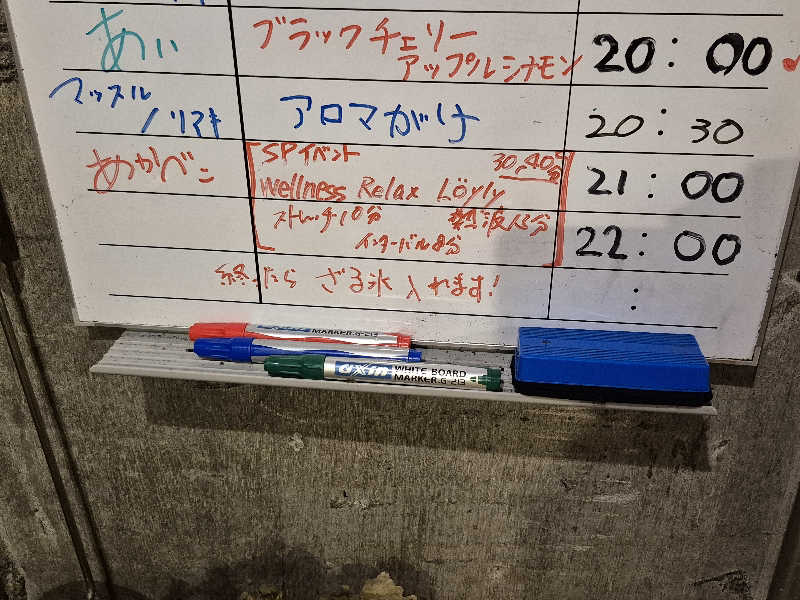 あい
ブラックチェリー
アップルシナモン
20:00
マッスル
ノリマキ
アロマがけ
20:30
あかべこ
SPイベント
30,40分
Wellness Relax Löyly
21:00
ストレッチ10分
熱波13分
インターバル8分
22:00
終ったら ざる氷入れます!
:
MARKER G-213
axin WHITE BOARD
MARKER G-213